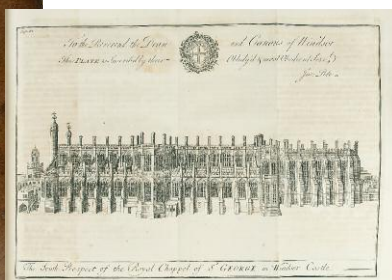 To the Reverend the Dean and Canons of Windsor
This PLATE is inscribed by their Oblidg'd & most Obedient Serv.t
Jos: Pote
The South Prospect of the Royal Chappel of S.t GEORGE in Windsor Castle.